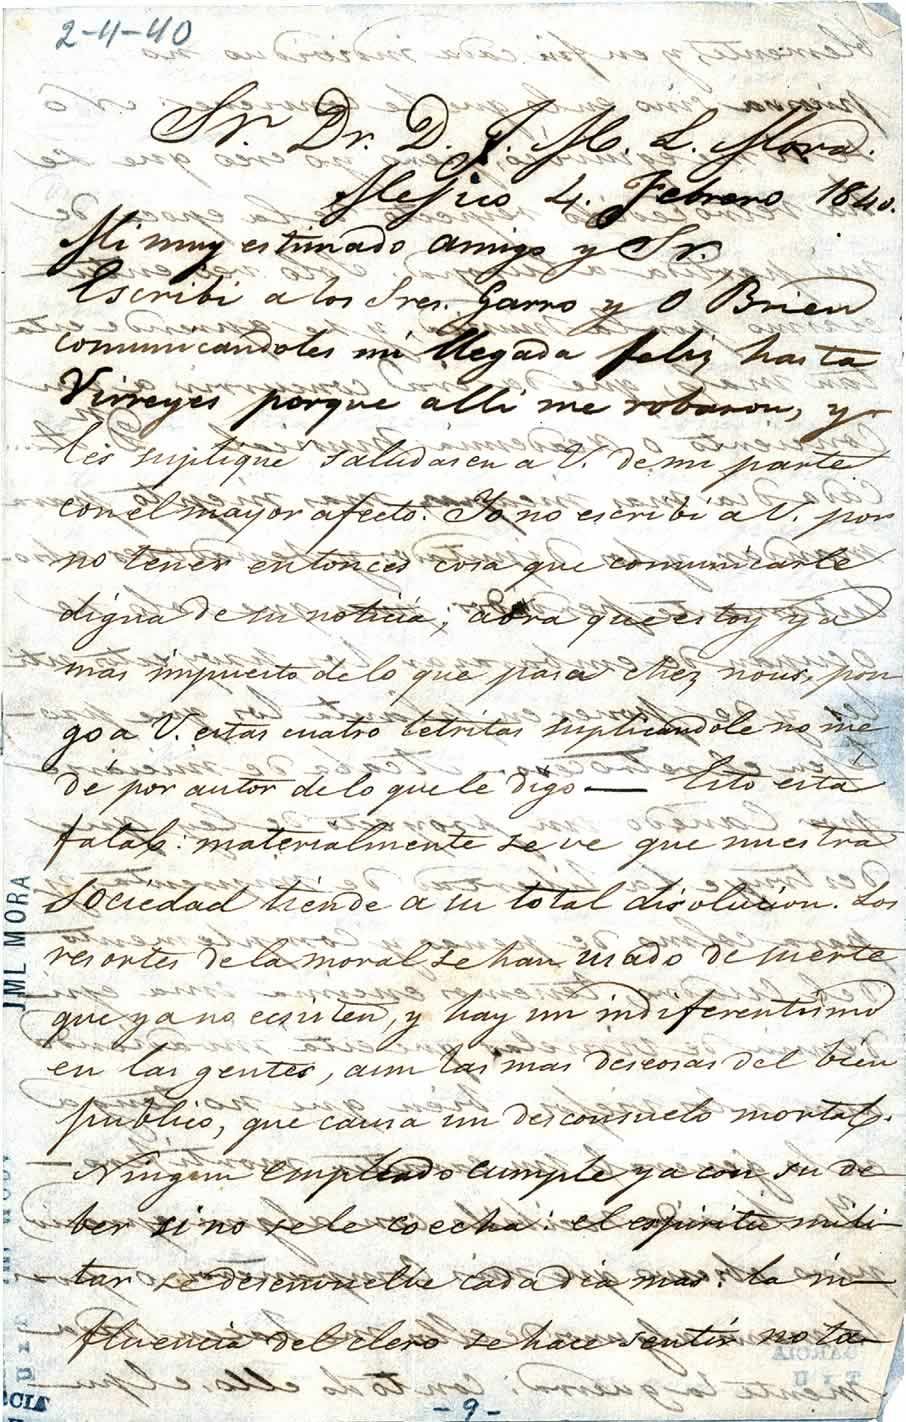 2-4-40
Sr. Dr. D. J. M. L. Mora.
Mejico 4. Febrero 1840.
Mi muy estimado amigo y Sr.
Escribi a los Sres. Garro y O'Brien
comunicandoles mi llegada feliz hasta
Virreyes porque alli me robaron, y
les suplique saludasen a V. de mi parte
con el mayor afecto. Yo no escribi a V. por
no tener entonces cosa que comunicarle
digna de su noticia; aora que estoy ya
mas impuesto de lo que pasa chez nous, pon
go a V. estas cuatro letritas suplicandole no me
dé por autor de lo que le digo — Esto esta
fatal: materialmente se ve que nuestra
sociedad tiende a su total disolucion. Los
resortes de la moral se han usado de suerte
que ya no ecsisten, y hay un indiferentismo
en las gentes, aun las mas deseosas del bien
publico, que causa un desconsuelo mortal.
Ningun empleado cumple ya con su de
ber si no se le coecha: el espiritu mili-
tar se desenvuelve cada dia mas: la in-
fluencia del clero se hace sentir nota-
JML MORA
- 9 -